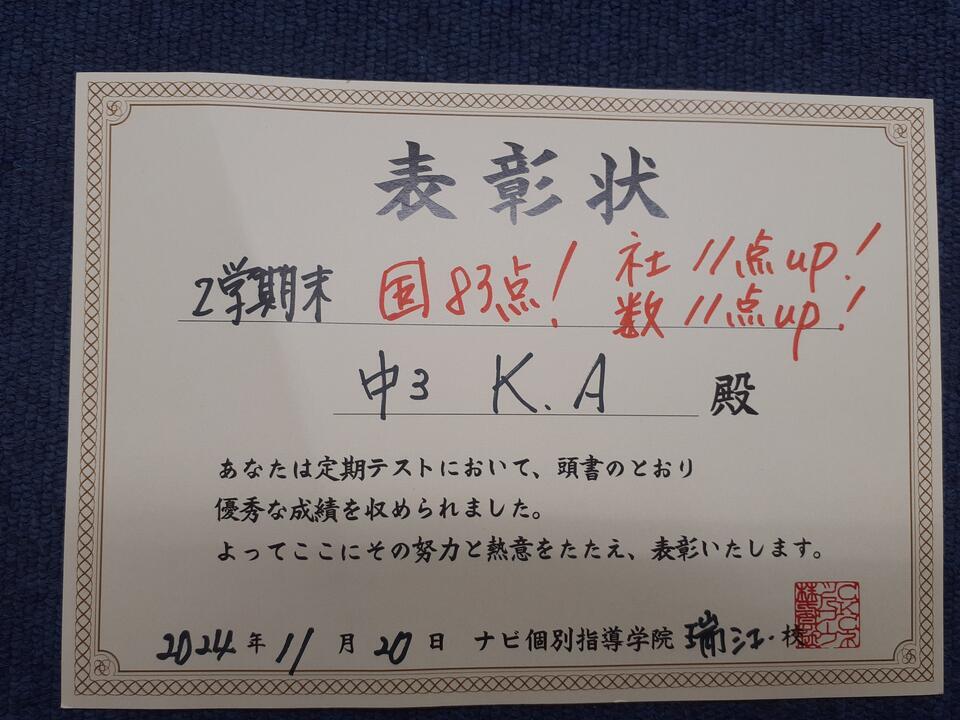 表彰状
2学期末 国83点! 社11点up!
数11点up!
中3 K.A 殿
あなたは定期テストにおいて、頭書のとおり
優秀な成績を収められました。
よってここにその努力と熱意をたたえ、表彰いたします。
2024年11月20日 ナビ個別指導学院 瑞江校